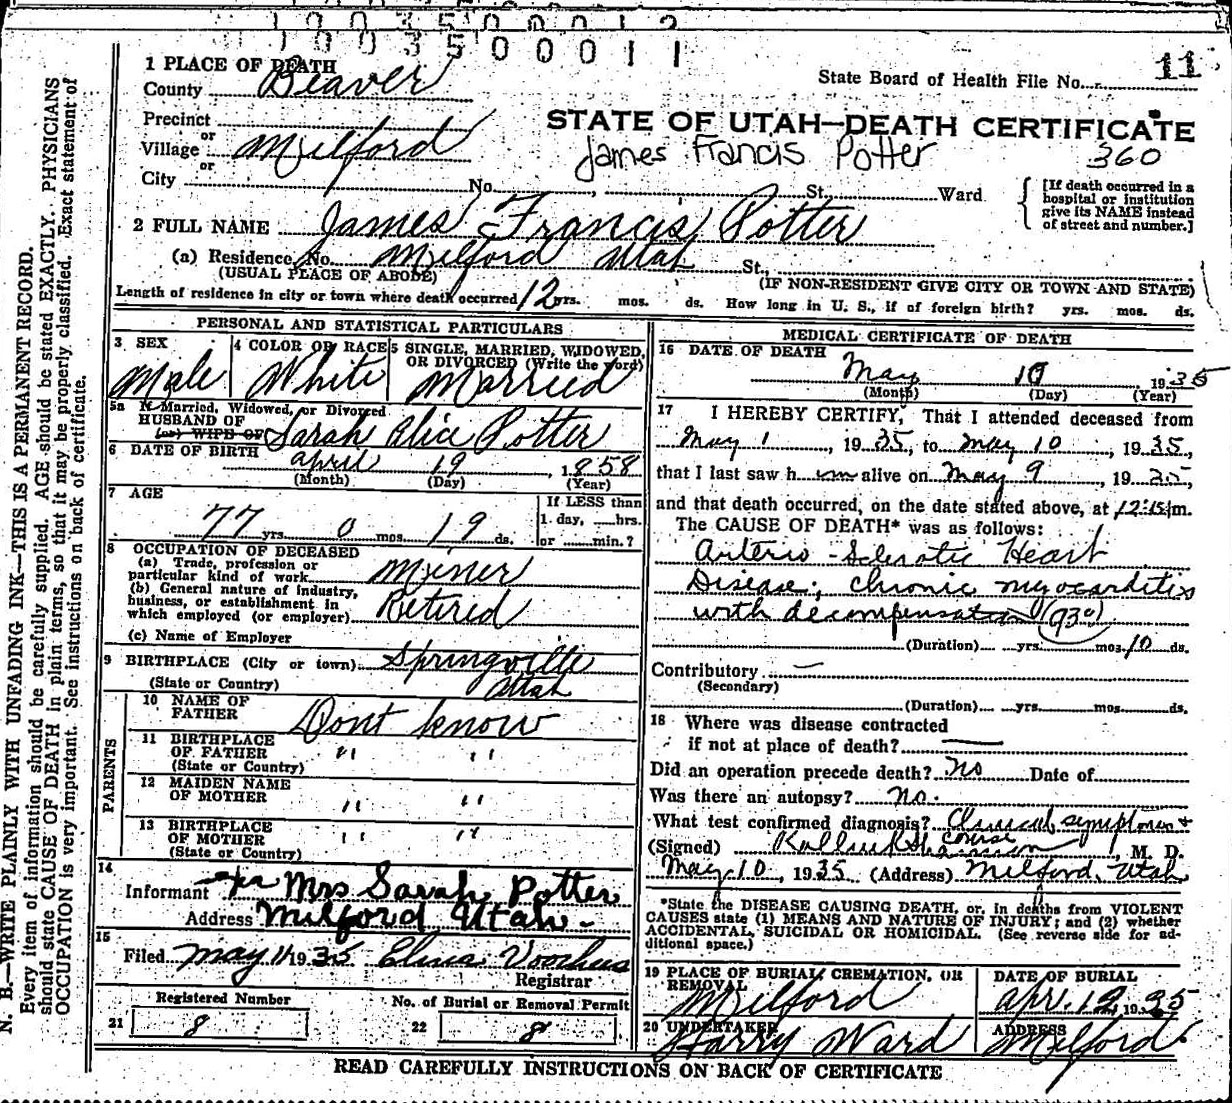 1 0 0 3 5 0 0 0 1 2
1 0 0 3 5 0 0 0 1 1
11
1 PLACE OF DEATH
County Beaver
State Board of Health File No.
Precinct
or
Village Milford
or
City No. St. Ward
STATE OF UTAH—DEATH CERTIFICATE
James Francis Potter 360
[If death occurred in a
hospital or institution
give its NAME instead
of street and number.]
2 FULL NAME James Francis Potter
(a) Residence, No. Milford Utah St.,
(USUAL PLACE OF ABODE) (IF NON-RESIDENT GIVE CITY OR TOWN AND STATE)
Length of residence in city or town where death occurred 12 yrs. mos. ds. How long in U. S., if of foreign birth? yrs. mos. ds.
PERSONAL AND STATISTICAL PARTICULARS
3 SEX 4 COLOR OR RACE 5 SINGLE, MARRIED, WIDOWED,
OR DIVORCED (Write the word)
Male White Married
5a If Married, Widowed, or Divorced
HUSBAND OF
(or) WIFE OF Sarah Alice Potter
6 DATE OF BIRTH April 19, 1858
(Month) (Day) (Year)
7 AGE If LESS than
77 yrs. 0 mos. 19 ds. 1 day, hrs.
or min.?
8 OCCUPATION OF DECEASED
(a) Trade, profession or
particular kind of work Miner
(b) General nature of industry,
business, or establishment in
which employed (or employer) Retired
(c) Name of Employer
9 BIRTHPLACE (City or town) Springville
(State or Country) Utah
PARENTS
10 NAME OF
FATHER Dont know
11 BIRTHPLACE
OF FATHER " "
(State or Country)
12 MAIDEN NAME
OF MOTHER " "
13 BIRTHPLACE
OF MOTHER " "
(State or Country)
14
Informant Mrs Sarah Potter
Address Milford Utah
15
Filed May 14 1935 Elma Voorhees
Registrar
Registered Number No. of Burial or Removal Permit
21 8 22 8
MEDICAL CERTIFICATE OF DEATH
16 DATE OF DEATH
May 10, 1935
(Month) (Day) (Year)
17 I HEREBY CERTIFY, That I attended deceased from
May 1, 1935, to May 10, 1935,
that I last saw him alive on May 9, 1935,
and that death occurred, on the date stated above, at 12:15 m.
The CAUSE OF DEATH* was as follows:
Arterio-Sclerotic Heart
Disease; chronic myocarditis
with decompensation (930)
(Duration) yrs. mos. 10 ds.
Contributory —
(Secondary)
(Duration) yrs. mos. ds.
18 Where was disease contracted
if not at place of death? —
Did an operation precede death? No Date of
Was there an autopsy? no.
What test confirmed diagnosis? Clinical symptoms +
course
(Signed) M. D.
May 10, 1935 (Address) Milford, Utah
*State the DISEASE CAUSING DEATH, or, in deaths from VIOLENT
CAUSES state (1) MEANS AND NATURE OF INJURY; and (2) whether
ACCIDENTAL, SUICIDAL OR HOMICIDAL. (See reverse side for ad-
ditional space.)
19 PLACE OF BURIAL, CREMATION, OR
REMOVAL DATE OF BURIAL
Milford Apr. 12, 1935
20 UNDERTAKER ADDRESS
Harry Ward Milford
READ CAREFULLY INSTRUCTIONS ON BACK OF CERTIFICATE
N. B.—WRITE PLAINLY WITH UNFADING INK—THIS IS A PERMANENT RECORD.
Every item of information should be carefully supplied. AGE should be stated EXACTLY. PHYSICIANS
should state CAUSE OF DEATH in plain terms, so that it may be properly classified. Exact statement of
OCCUPATION is very important. See instructions on back of certificate.